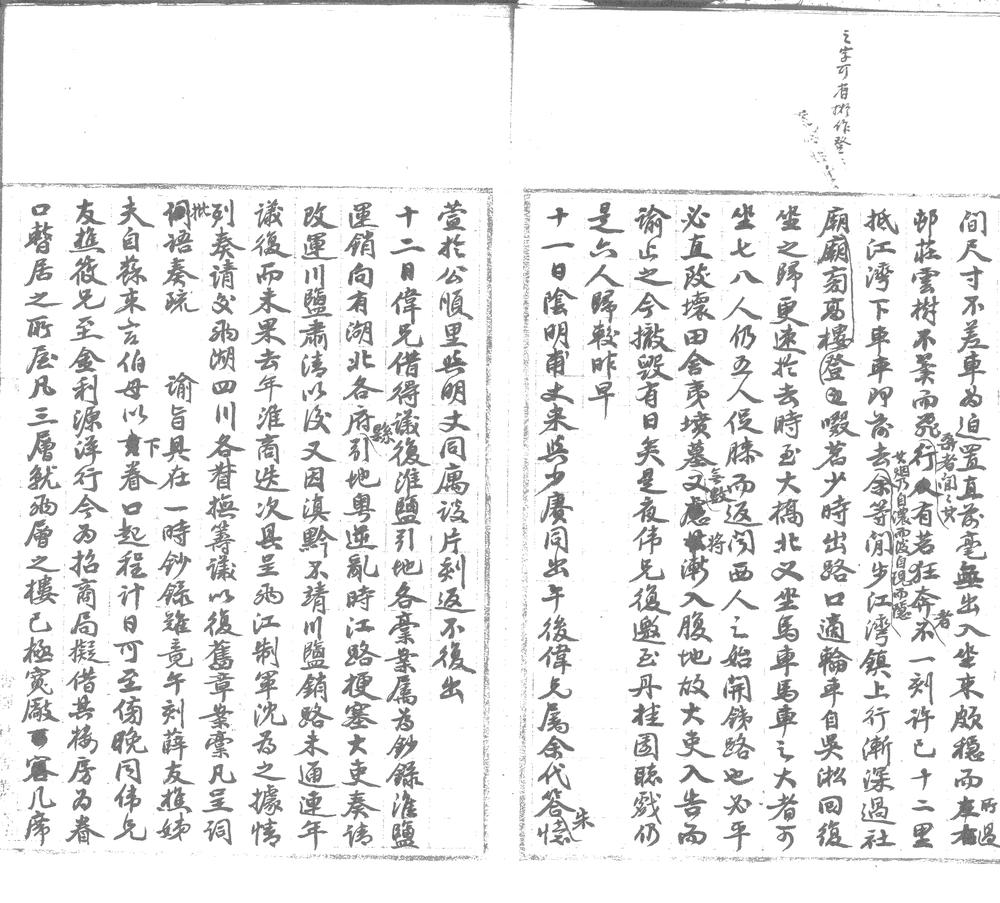 之字可省擬作登
間尺寸不差車為迫置直前毫無出入坐來頗穩而所過
邨莊雲樹不翼而飛行人有若狂奔者不一刻許已十二里
抵江灣下車車即前去余等閒步江灣鎮上行漸深過社
廟廟旁高樓登之啜茗少時出路口適輪車自吳淞回復
坐之歸更速於去時至大橋北又坐馬車馬車之大者可
坐七八人仍五人促膝而返聞西人之始開銕路也必平
必直毀壞田舍夷墳墓無數又慮將漸入腹地故大吏入告而
諭止之今撤毀有日矣是夜偉兄復邀至丹桂園聽戲仍
是六人歸較昨早
十一日陰明甫丈來與少賡同出午後偉兄屬余代答朱
萱於公順里與明丈同寓談片刻返不復出
十二日偉兄借得議復淮鹽引地各稾業屬為鈔錄淮鹽
運銷向有湖北各府縣引地粵逆亂時江路梗塞大吏奏請
改運川鹽肅清以後又因滇黔不靖川鹽銷路未通連年
議復而未果去年淮商迭次具呈兩江制軍沈為之據情
列奏請交兩湖四川各督撫籌議以復舊章業稾凡呈詞
批語奏疏 諭旨具在一時鈔錄難竟午刻薛友樵姊
夫自蘇來言伯母以下眷口起程計日可至傍晚同偉兄
友樵筱兄至金利源洋行今為招商局擬借其樓房為眷
口暫居之所屋凡三層就兩層之樓已極寬敞可容几席